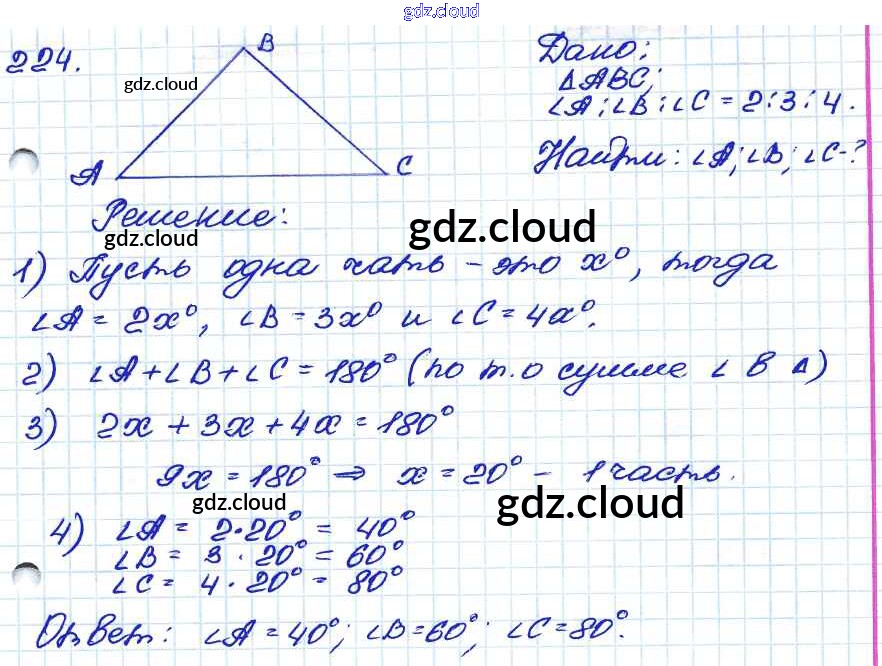 gdz.cloud
224.
B
gdz.cloud
A
C
Дано:
ΔABC;
∠A:∠B:∠C = 2:3:4.
Найти: ∠A; ∠B; ∠C-?
Решение:
gdz.cloud
gdz.cloud
1) Пусть одна чать - это x°, тогда
∠A = 2x°, ∠B = 3x° и ∠C = 4x°.
2) ∠A+∠B+∠C = 180° (по т.о сумме ∠ в Δ)
3) 2x + 3x + 4x = 180°
9x = 180° ⇒ x = 20° - 1 часть.
gdz.cloud
gdz.cloud
4) ∠A = 2·20° = 40°
∠B = 3 · 20° = 60°
∠C = 4 · 20° = 80°
Ответ: ∠A = 40°; ∠B=60°; ∠C=80°.